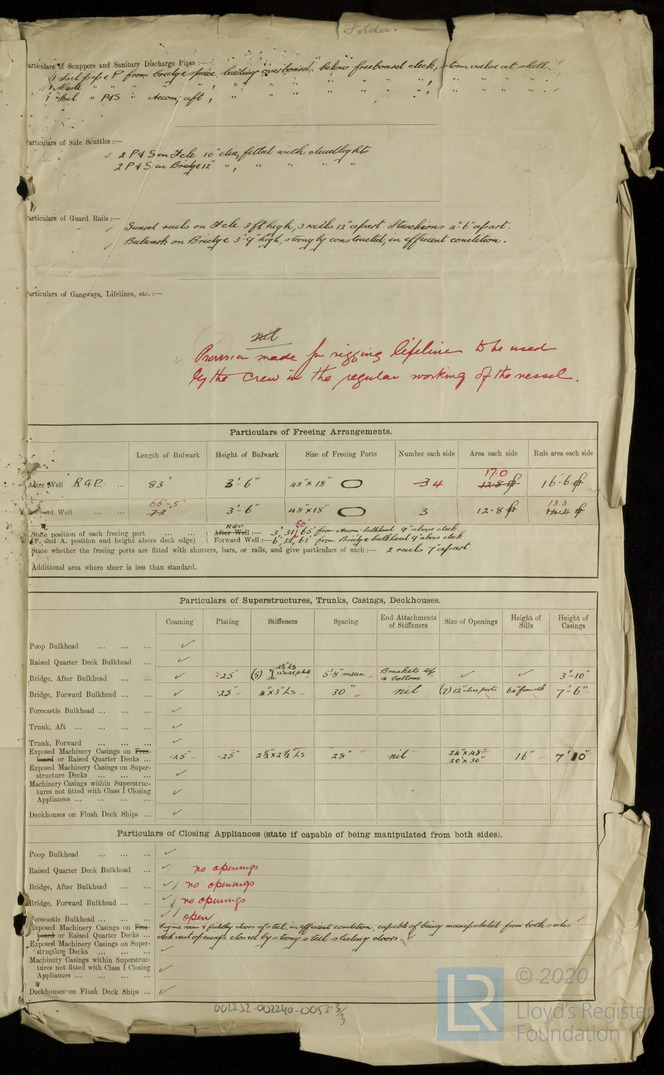 Particulars of Scuppers and Sanitary Discharge Pipes :—
1 Soil pipe P from bridge space, leading overboard, below freeboard deck, storm valve at shell.
1 " " " " " " " " "
1 Soil " P&S " Accom; aft, " " " " "
Particulars of Side Scuttles :—
2 P & S in Fcle 10" dia, fitted with deadlights
2 P & S in Bridge 12" " , " " " "
Particulars of Guard Rails :—
Guard rails on Fcle 3 ft high, 3 rails 12" apart Stanchions 4'-6" apart.
Bulwark on Bridge 3'9" high, strongly constructed, in efficient condition.
Particulars of Gangways, Lifelines, etc. :—
nil
Provision made for rigging lifelines to be used
by the crew in the regular working of the vessel.
Particulars of Freeing Arrangements.
Length of Bulwark Height of Bulwark Size of Freeing Ports Number each side Area each side Rule area each side
After Well R.Q.D. ... 83' 3'-6" 48" x 18" 3 4 17.0 12-8 ft 16-6 ft
Forward Well ... 66-5" 72 3'-6" 48" x 18" 3 12-8 ft 13.3
State position of each freeing port ... ... RQD After Well :— 3', 31', 60' from bulkhead 9" above deck
(F. and A. position and height above deck edge) Forward Well :— 6', 32', 63' from Bridge bulkhead 9" above deck
State whether the freeing ports are fitted with shutters, bars, or rails, and give particulars of such :— 2 rails 7" apart
Additional area where sheer is less than standard.
Particulars of Superstructures, Trunks, Casings, Deckhouses.
Coaming Plating Stiffeners Spacing End Attachments of Stiffeners Size of Openings Height of Sills Height of Casings
Poop Bulkhead ... ... ...
Raised Quarter Deck Bulkhead ...
Bridge, After Bulkhead ... ... .25" (5) 5'-8" mean Brackets top & bottom 3'-10"
Bridge, Forward Bulkhead ... ... .25" 4" x 3" Ls 30" nil (7) 12" 7'-6"
Forecastle Bulkhead ... ... ...
Trunk, Aft ... ... ... ...
Trunk, Forward ... ... ...
Exposed Machinery Casings on Free-
board or Raised Quarter Decks ... .25" .25" 2½" x 2½" Ls 28" nil 24" x 48" 20" x 30" 16" 7'10"
Exposed Machinery Casings on Super-
structure Decks ... ... ...
Machinery Casings within Superstruc-
tures not fitted with Class I Closing
Appliances ... ... ... ...
Deckhouses on Flush Deck Ships ...
Particulars of Closing Appliances (state if capable of being manipulated from both sides).
Poop Bulkhead ... ... ...
Raised Quarter Deck Bulkhead ... no openings
Bridge, After Bulkhead ... ... no openings
Bridge, Forward Bulkhead ... ... no openings
Forecastle Bulkhead ... ... ... open
Exposed Machinery Casings on Free-
board or Raised Quarter Decks ... Engine room & fidley doors of steel, in efficient condition, capable of being manipulated from both sides
closed by strong steel sliding doors
Exposed Machinery Casings on Super-
structure Decks ... ... ...
Machinery Casings within Superstruc-
tures not fitted with Class I Closing
Appliances ... ... ... ...
Deckhouses on Flush Deck Ships ...
002232-002240-0053-3/3
© 2020
LR
Lloyd's Register
Foundation